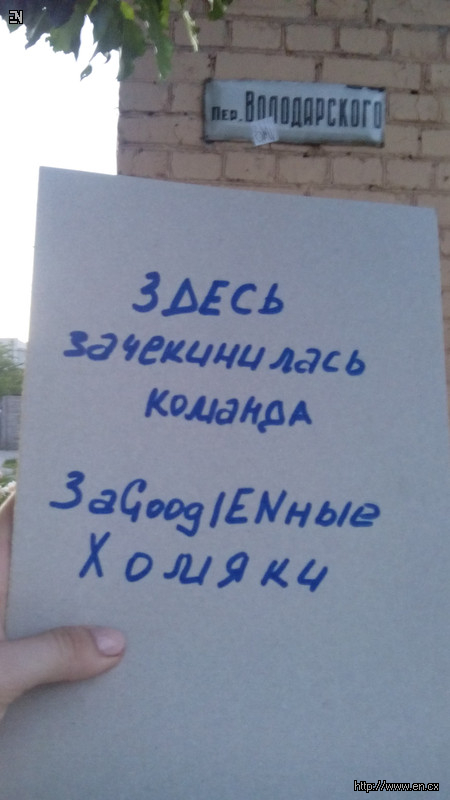 EN
Пер. ВОЛОДАРСКОГО
ЗДЕСЬ
зачекинилась
команда
ЗаGooglENные
Хомяки
http://www.en.cx